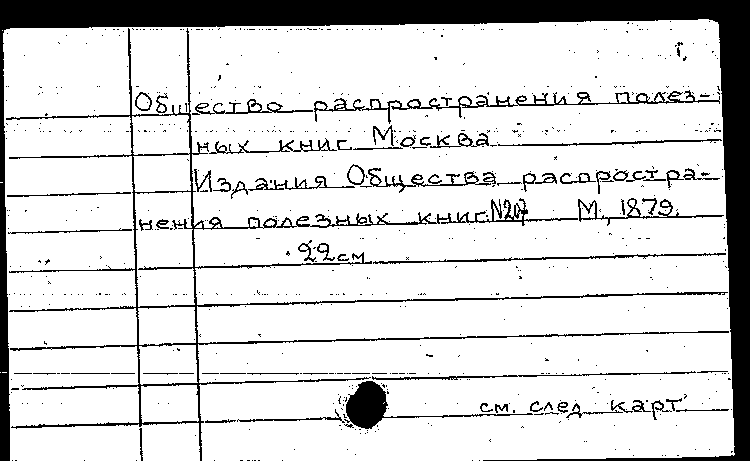 Общество распространения полез-
ных книг. Москва
Издания Общества распростра-
нения полезных книг. N207 М., 1879.
22 см
см. след. карт.